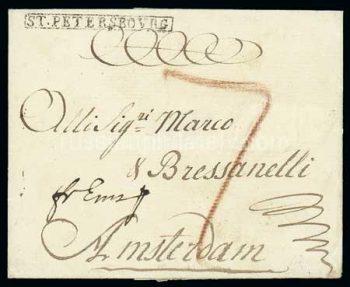 ST. PETERSBOURG
Alli Sigri. Marco
& Bressanelli
7
fr Ems
Amsterdam